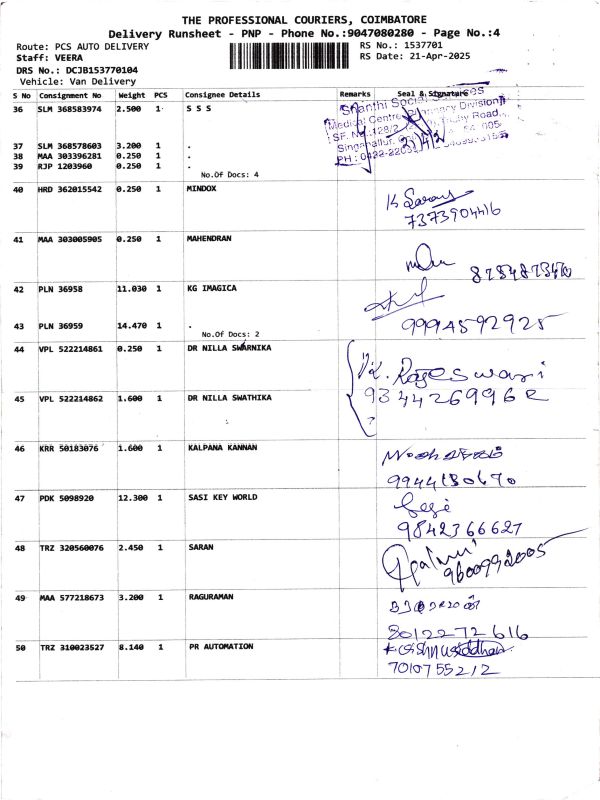 THE PROFESSIONAL COURIERS, COIMBATORE
Delivery Runsheet - PNP - Phone No.:9047080280 - Page No.:4
Route: PCS AUTO DELIVERY
RS No.: 1537701
Staff: VEERA
RS Date: 21-Apr-2025
DRS No.: DCJB153770104
Vehicle: Van Delivery
S No Consignment No Weight PCS Consignee Details Remarks Seal & Signature
36 SLM 368583974 2.500 1 S S S
Shanthi Social Services
Medical Centre Pharmacy Division
Singanallur,
21/4/2
37 SLM 368578603 3.200 1 .
38 MAA 303396281 0.250 1 .
39 RJP 1203960 0.250 1 .
No.Of Docs: 4
40 HRD 362015542 0.250 1 MINDOX
K Saran
7373904416
41 MAA 303005905 0.250 1 MAHENDRAN
42 PLN 36958 11.030 1 KG IMAGICA
43 PLN 36959 14.470 1 .
No.Of Docs: 2
9994592925
44 VPL 522214861 0.250 1 DR NILLA SWARNIKA
Rajeswari
45 VPL 522214862 1.600 1 DR NILLA SWATHIKA
46 KRR 50183076 1.600 1 KALPANA KANNAN
47 PDK 5098920 12.300 1 SASI KEY WORLD
9842366627
48 TRZ 320560076 2.450 1 SARAN
9600992005
49 MAA 577218673 3.200 1 RAGURAMAN
8012272616
50 TRZ 310023527 8.140 1 PR AUTOMATION
7010755212